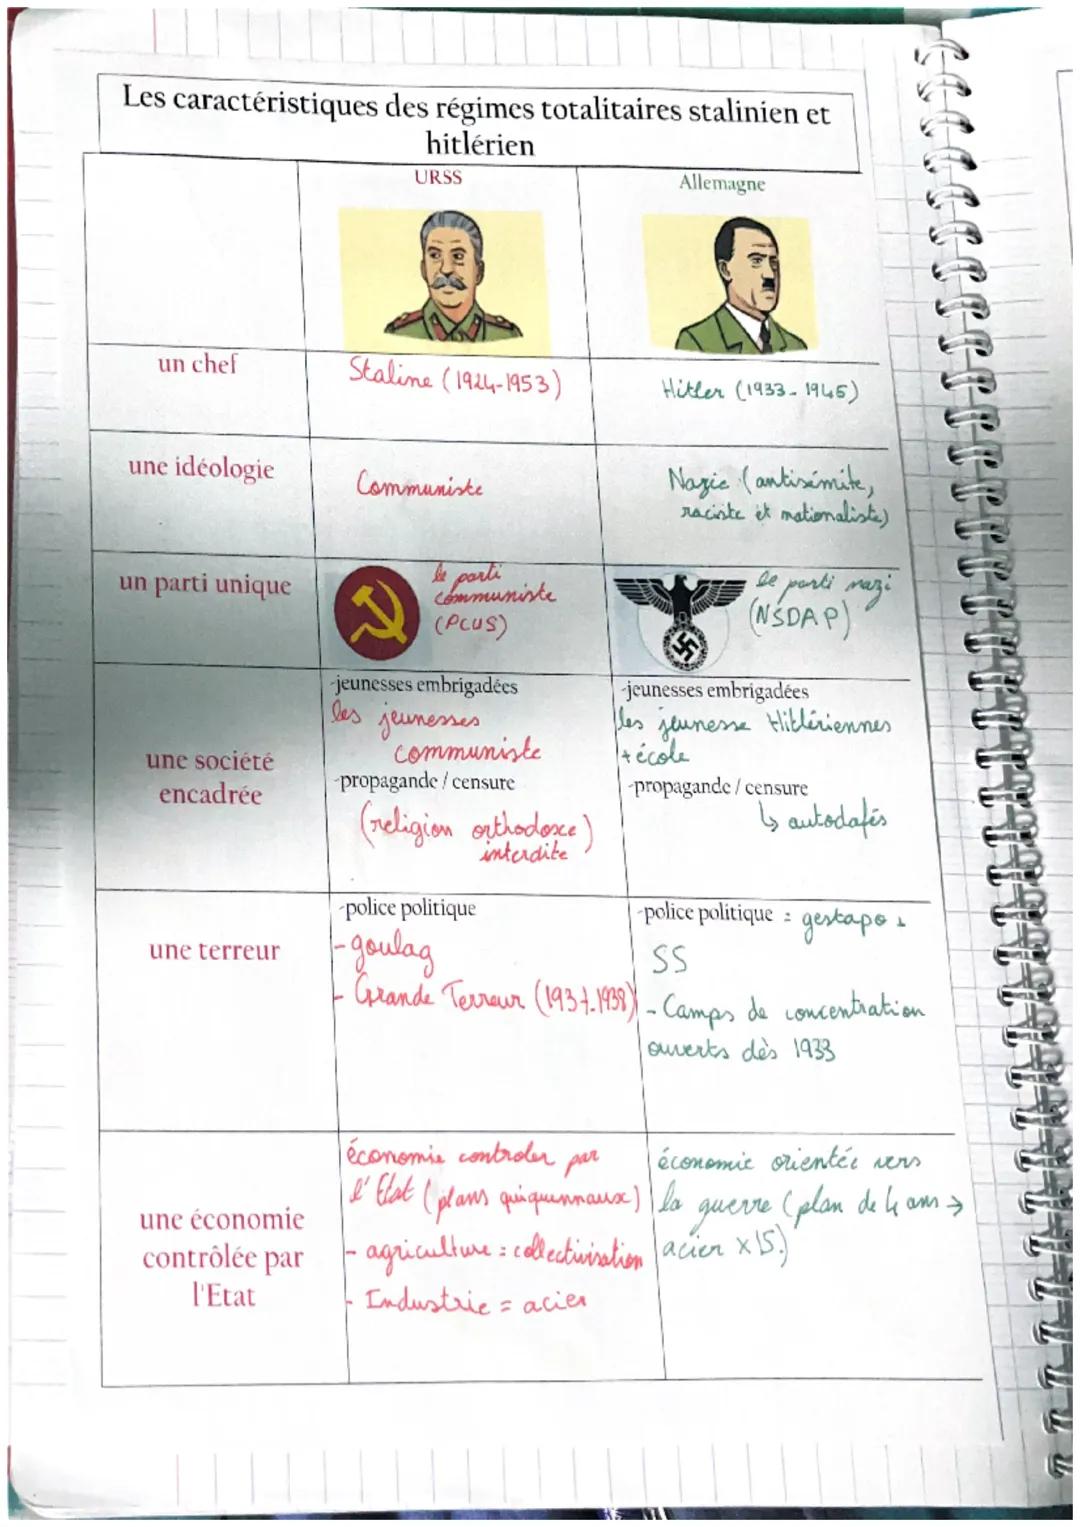 Les caractéristiques des régimes totalitaires stalinien et
hitlérien
URSS
Allemagne
un chef
Staline (1924-1953)
Hitler (1933-1945)
une idéologie
Communiste
Nazie (antisémite,
raciste et nationaliste)
un parti unique
le parti
communiste
(PCUS)
le parti nazi
(NSDAP)
une société
encadrée
-jeunesses embrigadées
les jeunesses
communiste
-propagande / censure
(religion orthodoxe)
interdite
-jeunesses embrigadées
les jeunesse Hitlériennes
+ école
-propagande / censure
↳ autodafés
une terreur
-police politique
- goulag
- Grande Terreur (1937-1938)
-police politique = gestapo
SS
- Camps de concentration
ouverts dès 1933
une économie
contrôlée par
l'Etat
économie controler par
l'Etat (plans quiquennaux)
- agriculture : collectivisation
- Industrie = acier
économie orientée vers
la guerre (plan de 4 ans →
acier x15.)